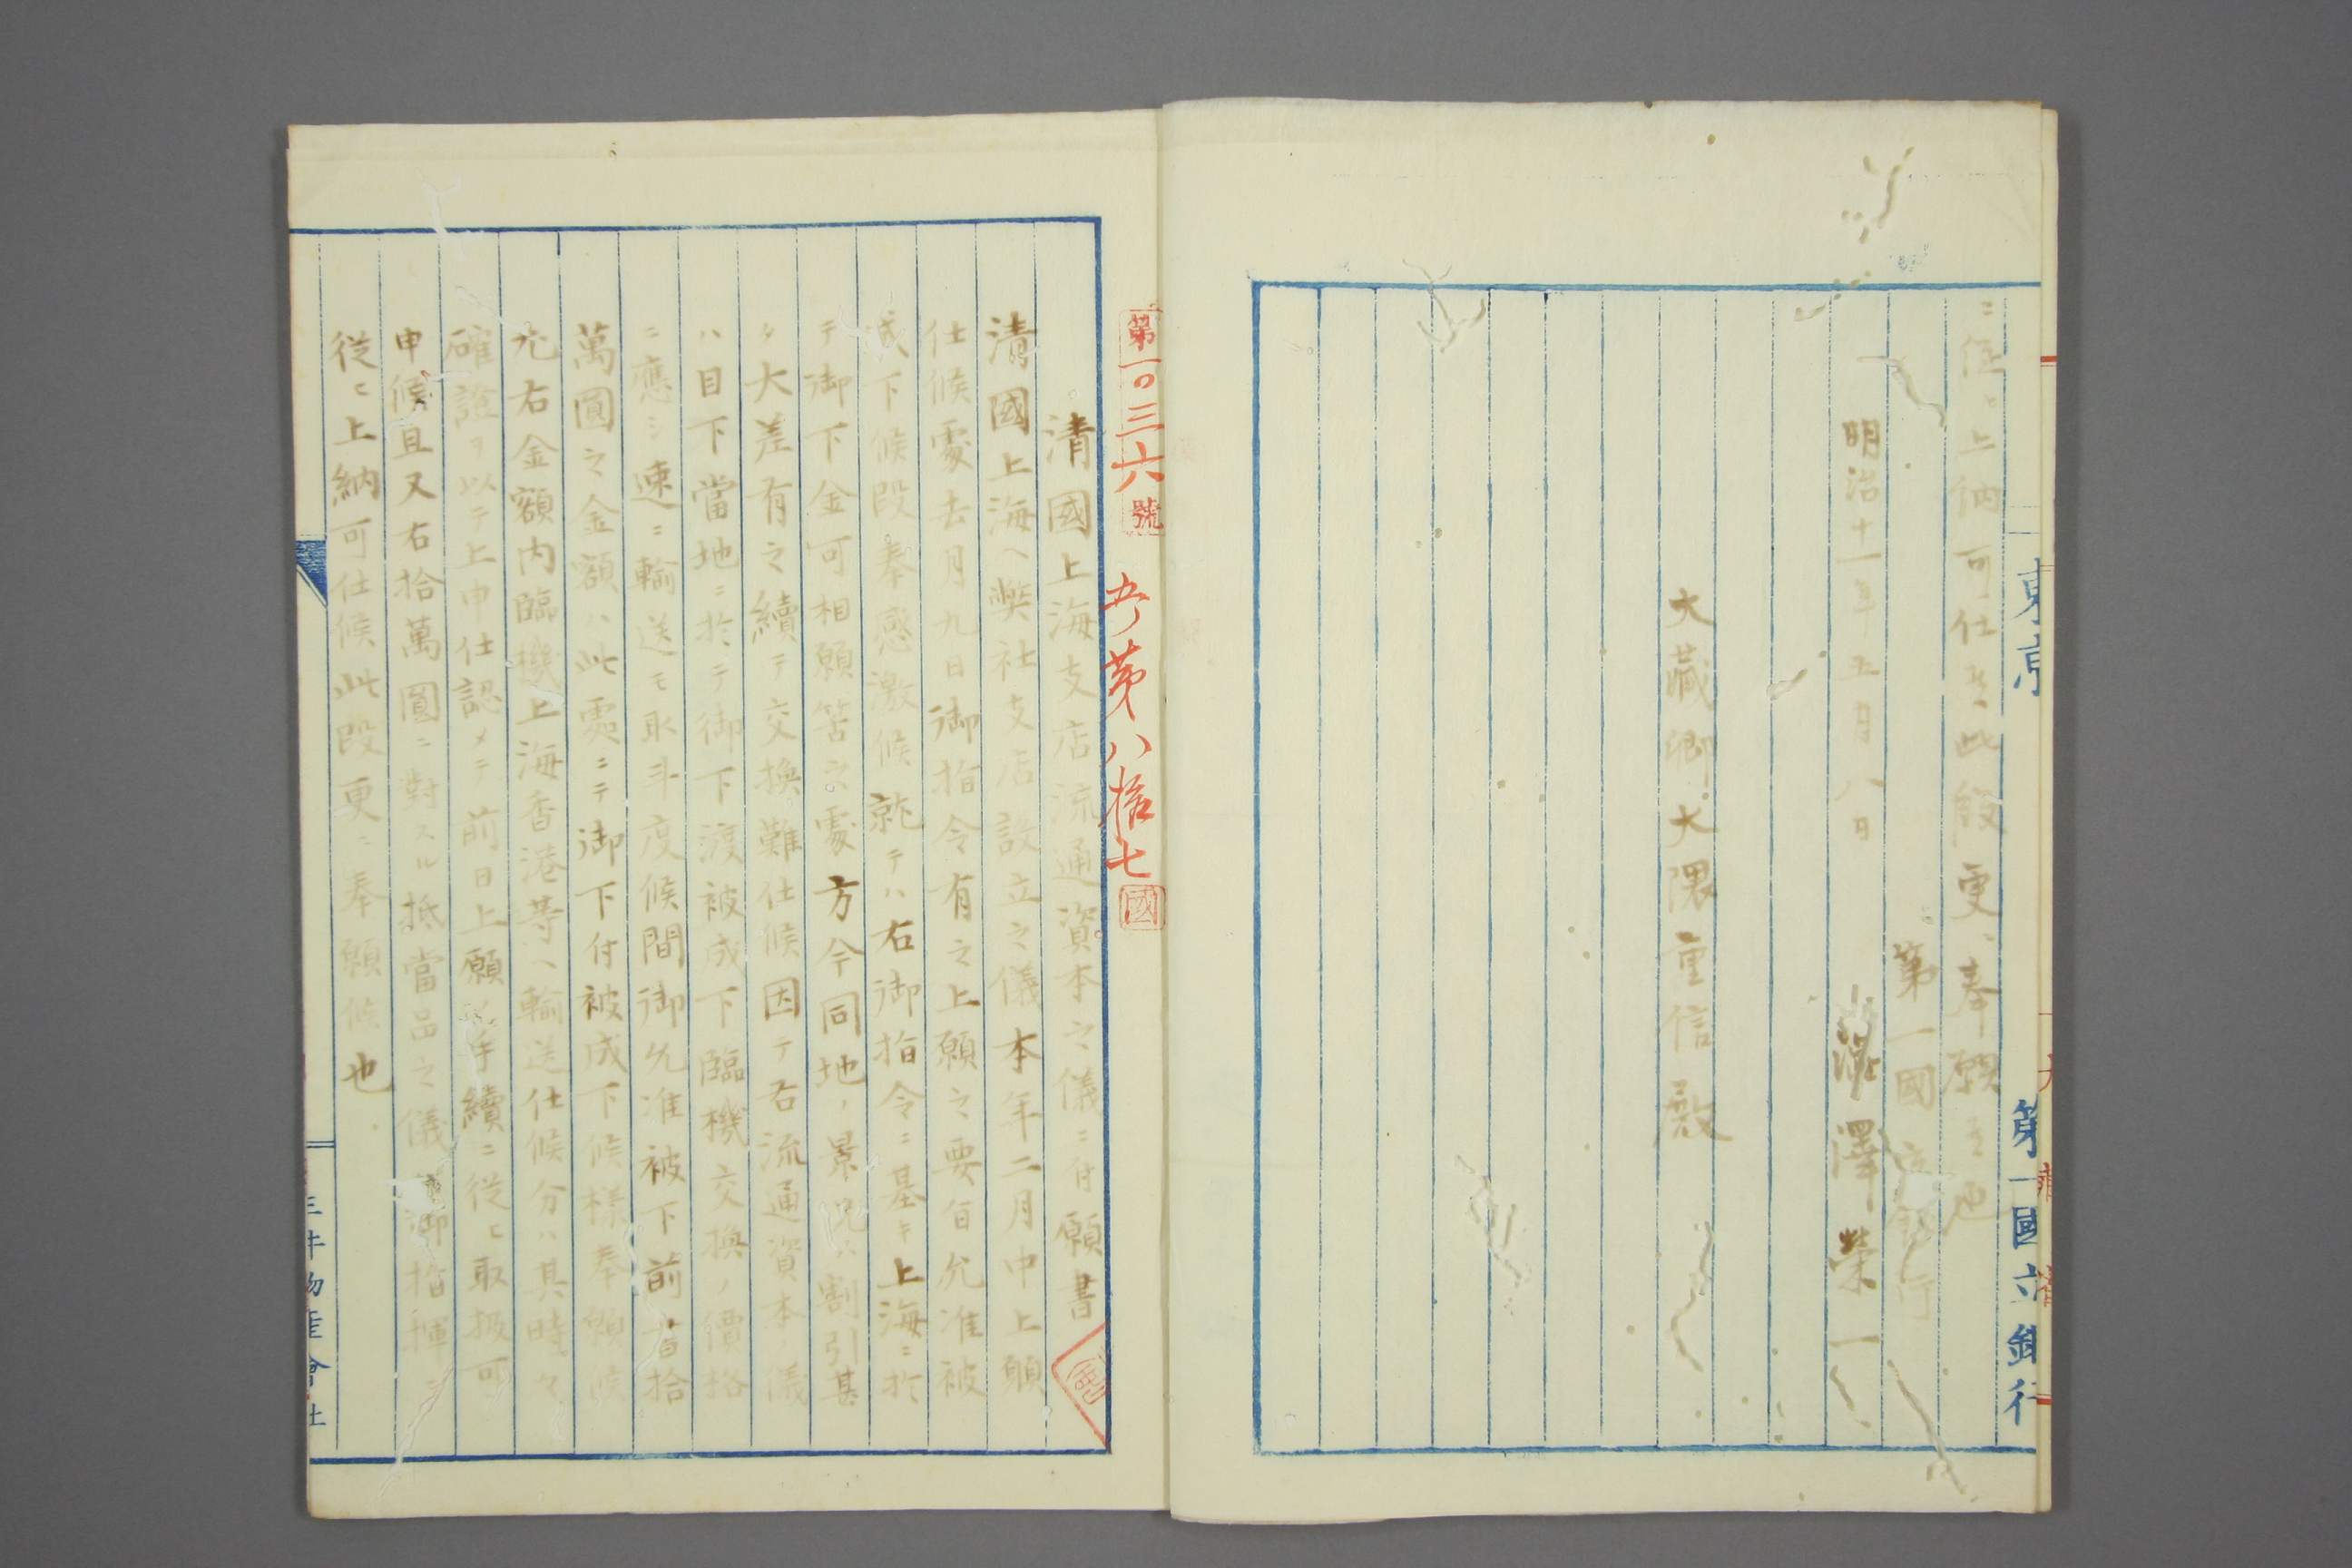 東京
第一國立銀行
上納可仕候此段更ニ奉願候也
第一國立銀行
明治十一年五月八日
澁澤榮一
大藏卿大隈重信殿
第一〇三六號
第八拾七
國
清國上海支店流通資本之儀ニ付願書
清國上海ヘ弊社支店設立之儀本年二月中上願
仕候處去月九日御指令有之上願之要旨允准被
成下候段奉感激候就テハ右御指令ニ基キ上海ニ於
テ御下金可相願筈之處方今同地ノ景況ハ割引甚
タ大差有之續テ交換難仕候因テ右流通資本ノ儀
ハ目下當地ニ於テ御下渡被成下臨機交換ノ價格
ニ應シ速ニ輸送モ取斗度候間御允准被下前書拾
萬圓之金額ハ此處ニテ御下付被成下候様奉願候
尤右金額内臨機上海香港等ヘ輸送仕候分ハ其時々
確證ヲ以テ上申仕認メテ前日上願之手續ニ從ヒ取扱可
申候且又右拾萬圓ニ對スル抵當品之儀ハ御指揮ニ
從ヒ上納可仕候此段更ニ奉願候也
三井物産會社